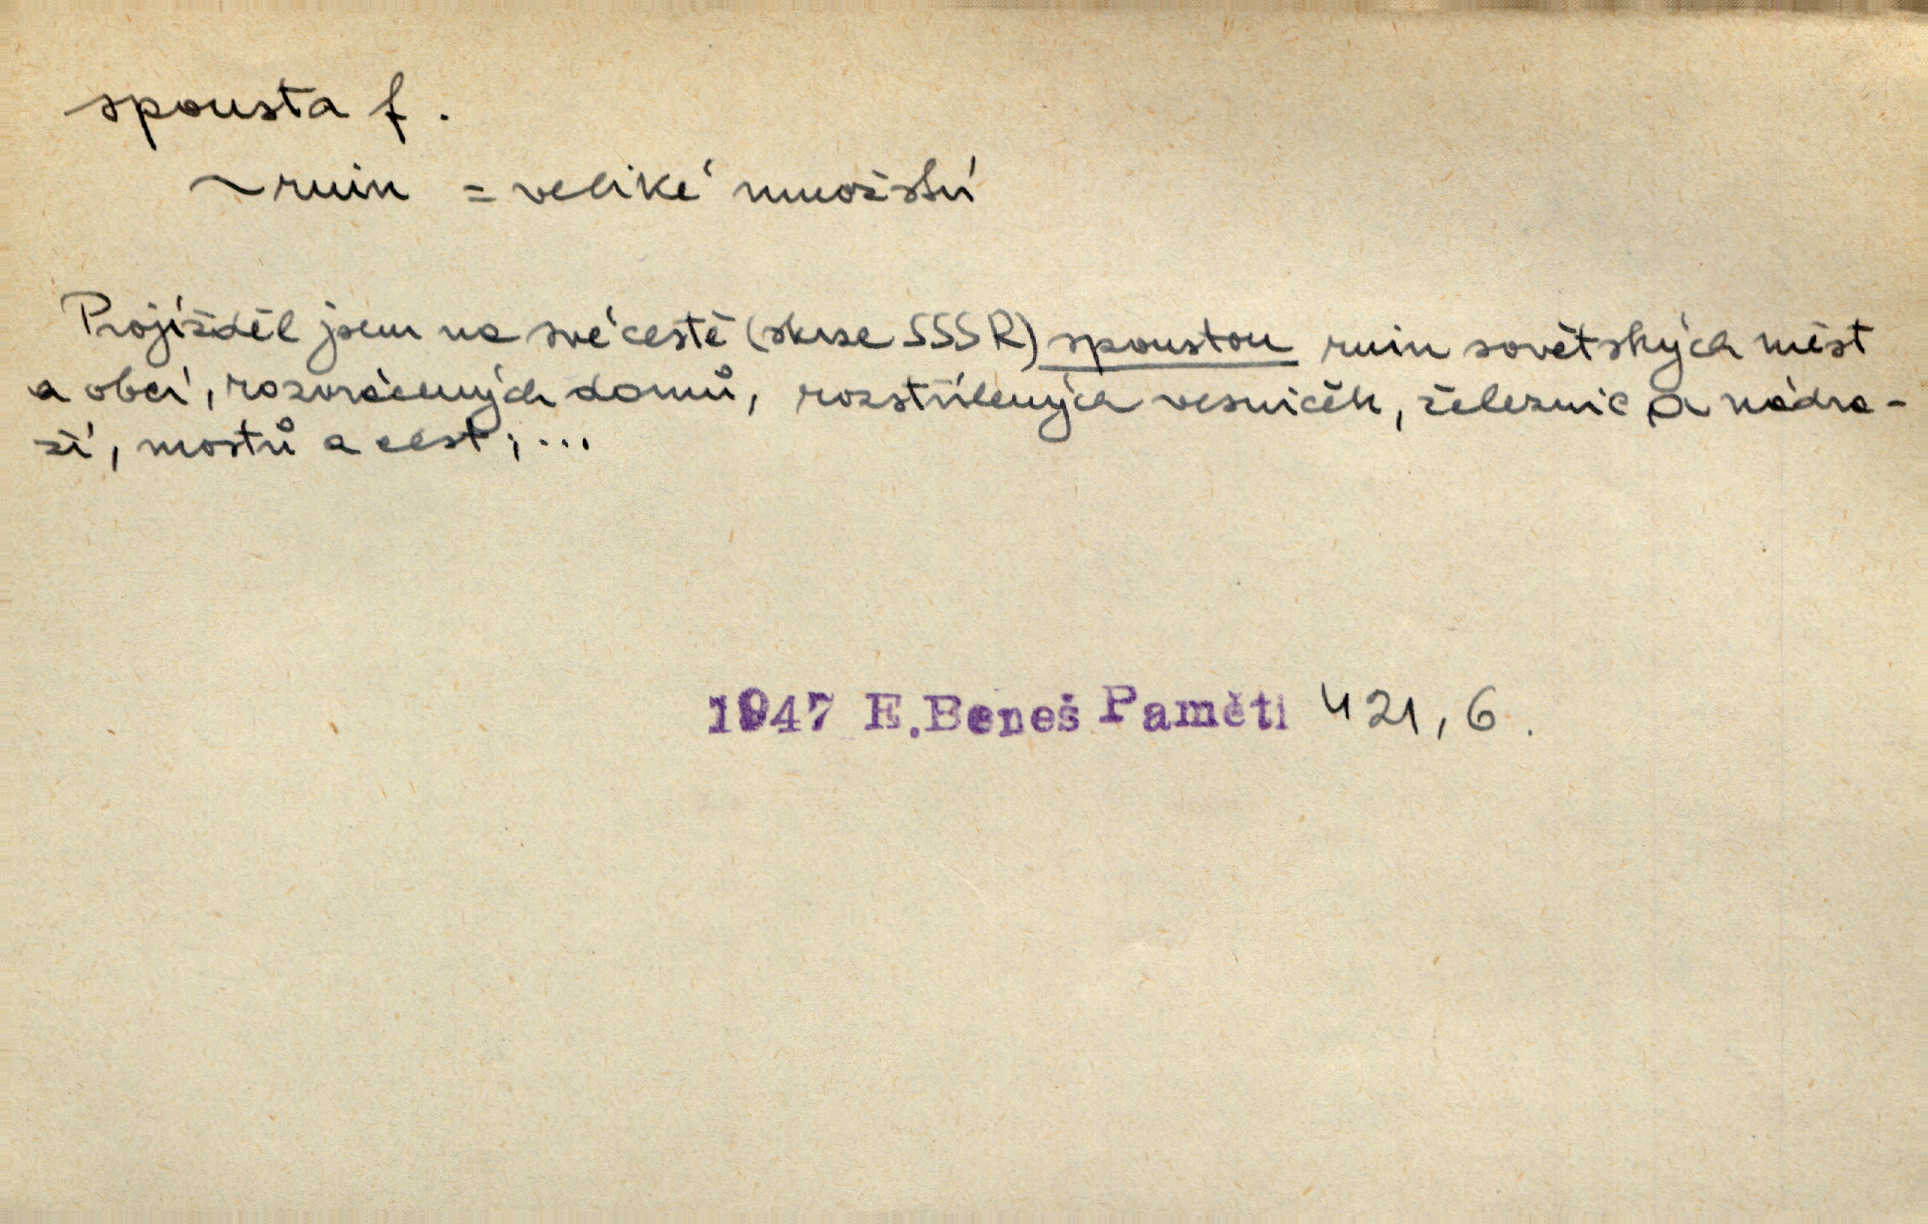 spousta f.
~ ruin = veliké množství
Projížděl jsem na své cestě (skrse SSSR) spoustou ruin sovětských měst
a obcí, rozvrácených domů, rozstřílených vesniček, železnic a nádra-
ží, mostů a cest; ...
1947 E. Beneš Paměti 421, 6.